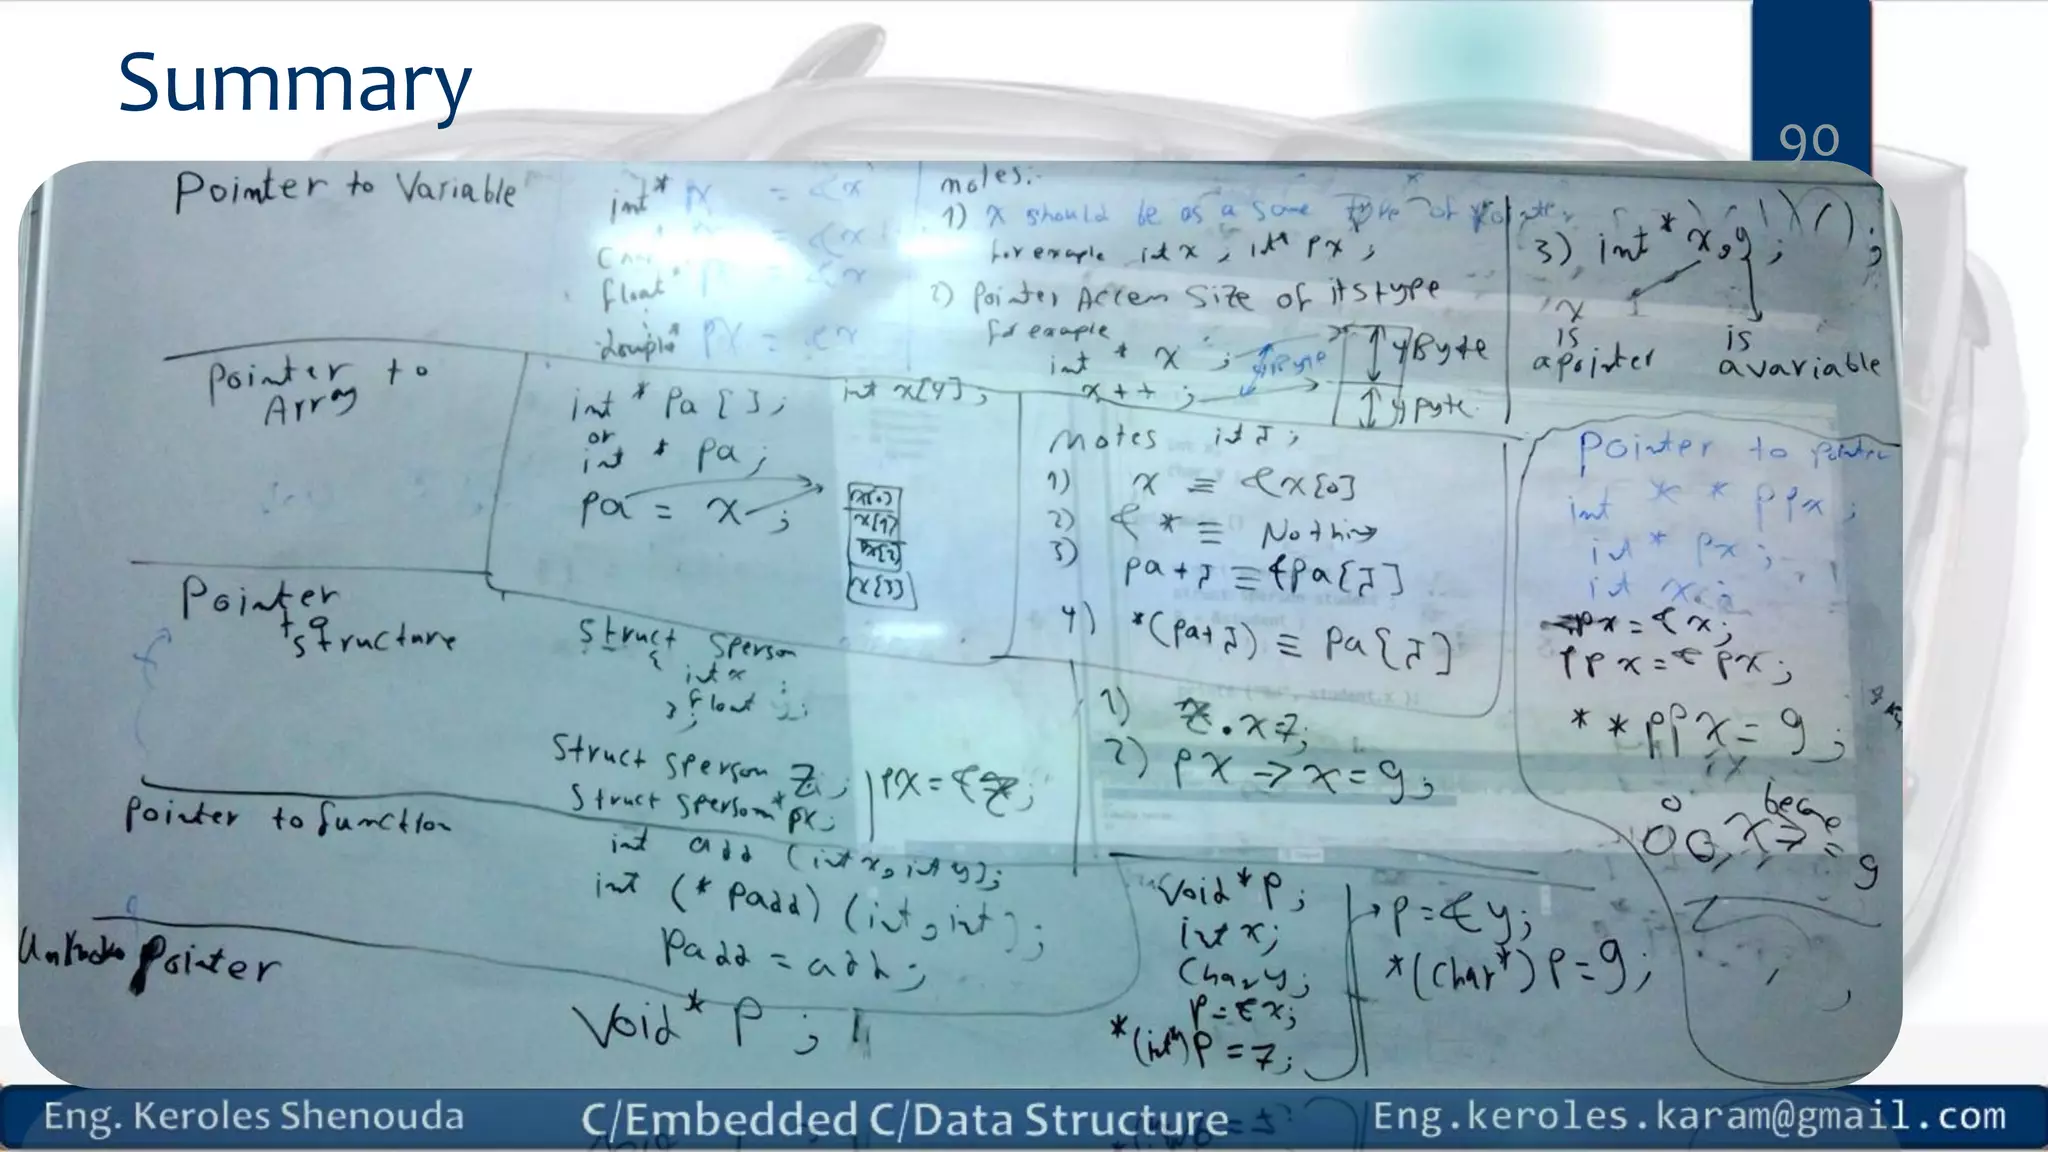 Summary
90
Pointer to Variable
int* px = &x
= &x
float* = &x
double* px = &x
notes:-
1) x should be as a same type of pointer
for example int x ; int* px ;
2) Pointer Access Size of its type
for example
int * x ;
x++ ;
4Byte
4Byte
4Byte
3) int* x,y ;
x is a pointer
is a variable
Pointer to Array
int * pa [ ] ;
or
int * pa ;
pa = x ;
int x[4] ;
x[0]
x[1]
x[2]
x[3]
notes int J ;
1) x ≡ &x[0]
2) & * ≡ Nothing
3) pa+J ≡ &pa[J]
4) *(pa+J) ≡ pa[J]
Pointer to pointer
int * * ppx ;
int * px ;
int x ;
px = &x ;
ppx = &px ;
* * ppx = 9 ;
x become = 9
Pointer to structure
struct Sperson
{
int x ;
float ;
} ;
struct Sperson z ;
struct Sperson* px ;
px = &z ;
1) z.x=7;
2) px -> x = 9 ;
Pointer to function
int add (int x, int y);
int (* padd) (int, int) ;
padd = add ;
Pointer
Void* p ;
Void* p ;
int x;
Char y;
p = &x;
*(int*)p = 7;
p = &y;
*(char*)p = 9;
Eng. Keroles Shenouda
C/Embedded C/Data Structure
Eng.keroles.karam@gmail.com